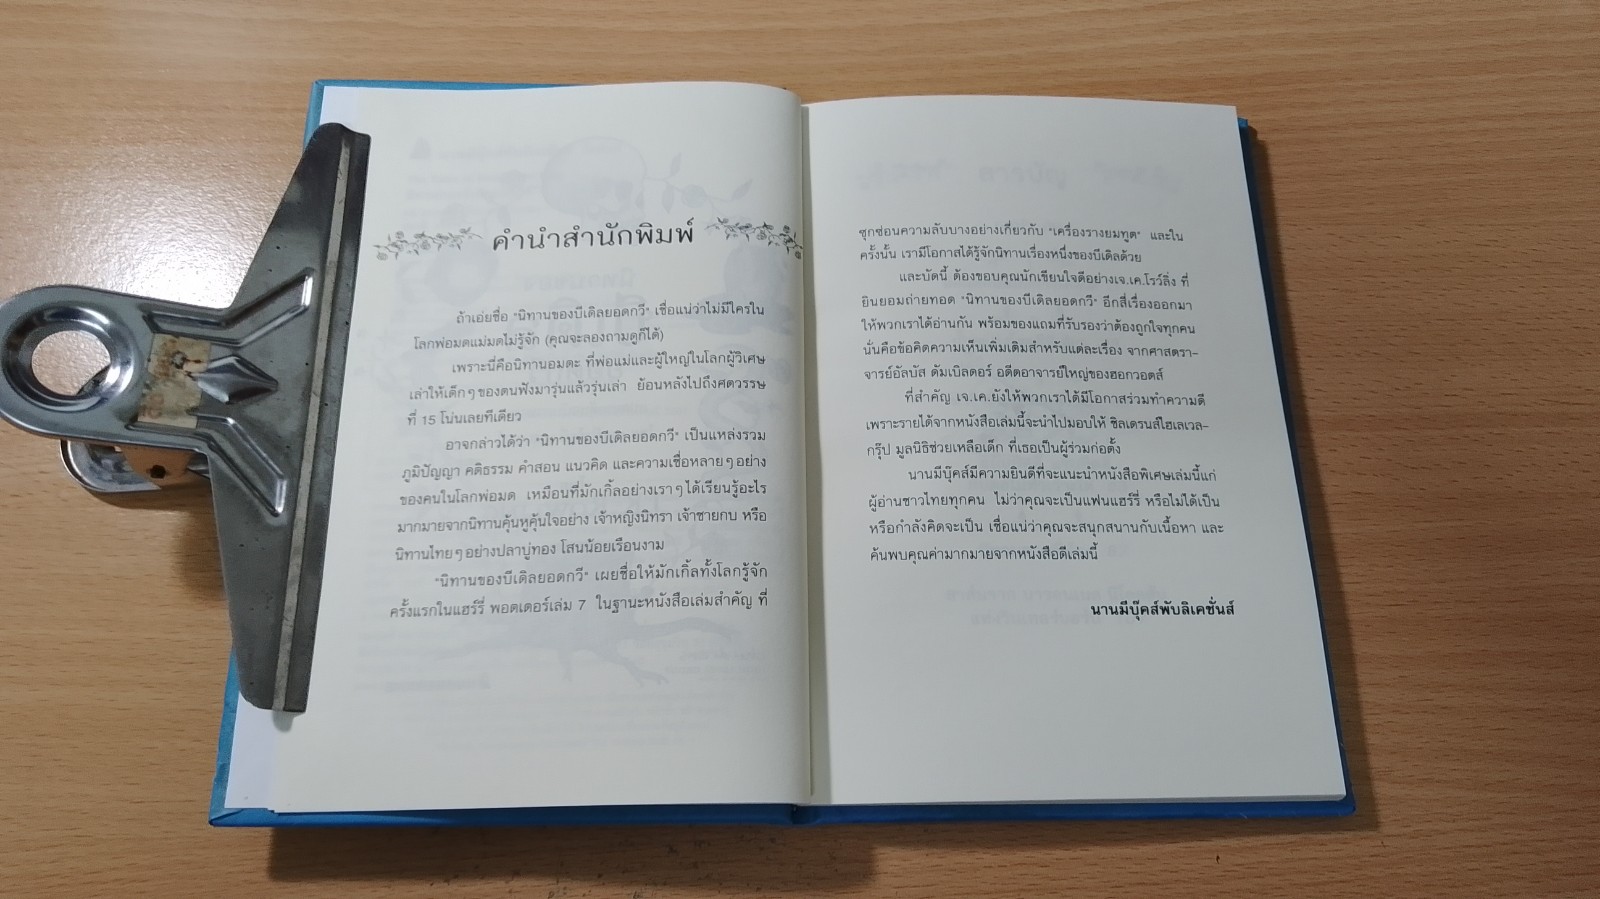 คำนำสำนักพิมพ์
ถ้าเอ่ยชื่อ "นิทานของบีเดิลยอดกวี" เชื่อแน่ว่าไม่มีใครใน
โลกพ่อมดแม่มดไม่รู้จัก (คุณจะลองถามดูก็ได้)
เพราะนี่คือนิทานอมตะ ที่พ่อแม่และผู้ใหญ่ในโลกผู้วิเศษ
เล่าให้เด็กๆของตนฟังมารุ่นแล้วรุ่นเล่า ย้อนหลังไปถึงศตวรรษ
ที่ 15 โน่นเลยทีเดียว
อาจกล่าวได้ว่า "นิทานของบีเดิลยอดกวี" เป็นแหล่งรวม
ภูมิปัญญา คติธรรม คำสอน แนวคิด และความเชื่อหลายๆอย่าง
ของคนในโลกพ่อมด เหมือนที่มักเกิ้ลอย่างเราๆได้เรียนรู้อะไร
มากมายจากนิทานคุ้นหูคุ้นใจอย่าง เจ้าหญิงนิทรา เจ้าชายกบ หรือ
นิทานไทยๆอย่างปลาบู่ทอง โสนน้อยเรือนงาม
"นิทานของบีเดิลยอดกวี" เผยชื่อให้มักเกิ้ลทั้งโลกรู้จัก
ครั้งแรกในแฮร์รี่ พอตเตอร์เล่ม 7 ในฐานะหนังสือเล่มสำคัญ ที่
ซุกซ่อนความลับบางอย่างเกี่ยวกับ "เครื่องรางยมทูต" และใน
ครั้งนั้น เรามีโอกาสได้รู้จักนิทานเรื่องหนึ่งของบีเดิลด้วย
และบัดนี้ ต้องขอบคุณนักเขียนใจดีอย่างเจ.เค.โรว์ลิ่ง ที่
ยินยอมถ่ายทอด "นิทานของบีเดิลยอดกวี" อีกสี่เรื่องออกมา
ให้พวกเราได้อ่านกัน พร้อมของแถมที่รับรองว่าต้องถูกใจทุกคน
นั่นคือข้อคิดความเห็นเพิ่มเติมสำหรับแต่ละเรื่อง จากศาสตรา-
จารย์อัลบัส ดัมเบิลดอร์ อดีตอาจารย์ใหญ่ของฮอกวอตส์
ที่สำคัญ เจ.เค.ยังให้พวกเราได้มีโอกาสร่วมทำความดี
เพราะรายได้จากหนังสือเล่มนี้จะนำไปมอบให้ ชิลเดรนส์ไฮเลเวล-
กรุ๊ป มูลนิธิช่วยเหลือเด็ก ที่เธอเป็นผู้ร่วมก่อตั้ง
นานมีบุ๊คส์มีความยินดีที่จะแนะนำหนังสือพิเศษเล่มนี้แก่
ผู้อ่านชาวไทยทุกคน ไม่ว่าคุณจะเป็นแฟนแฮร์รี่ หรือไม่ได้เป็น
หรือกำลังคิดจะเป็น เชื่อแน่ว่าคุณจะสนุกสนานกับเนื้อหา และ
ค้นพบคุณค่ามากมายจากหนังสือดีเล่มนี้
นานมีบุ๊คส์พับลิเคชั่นส์